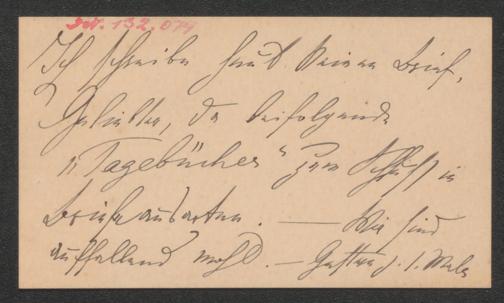 I.N. 132.074
Ich schreibe heut keinen Brief,
Geliebter, da beifolgende
„Tagebücher“ zum Schluß in
Briefe ausarten. — Wir sind
auffallend wohl. — Gestern z. 1. Male